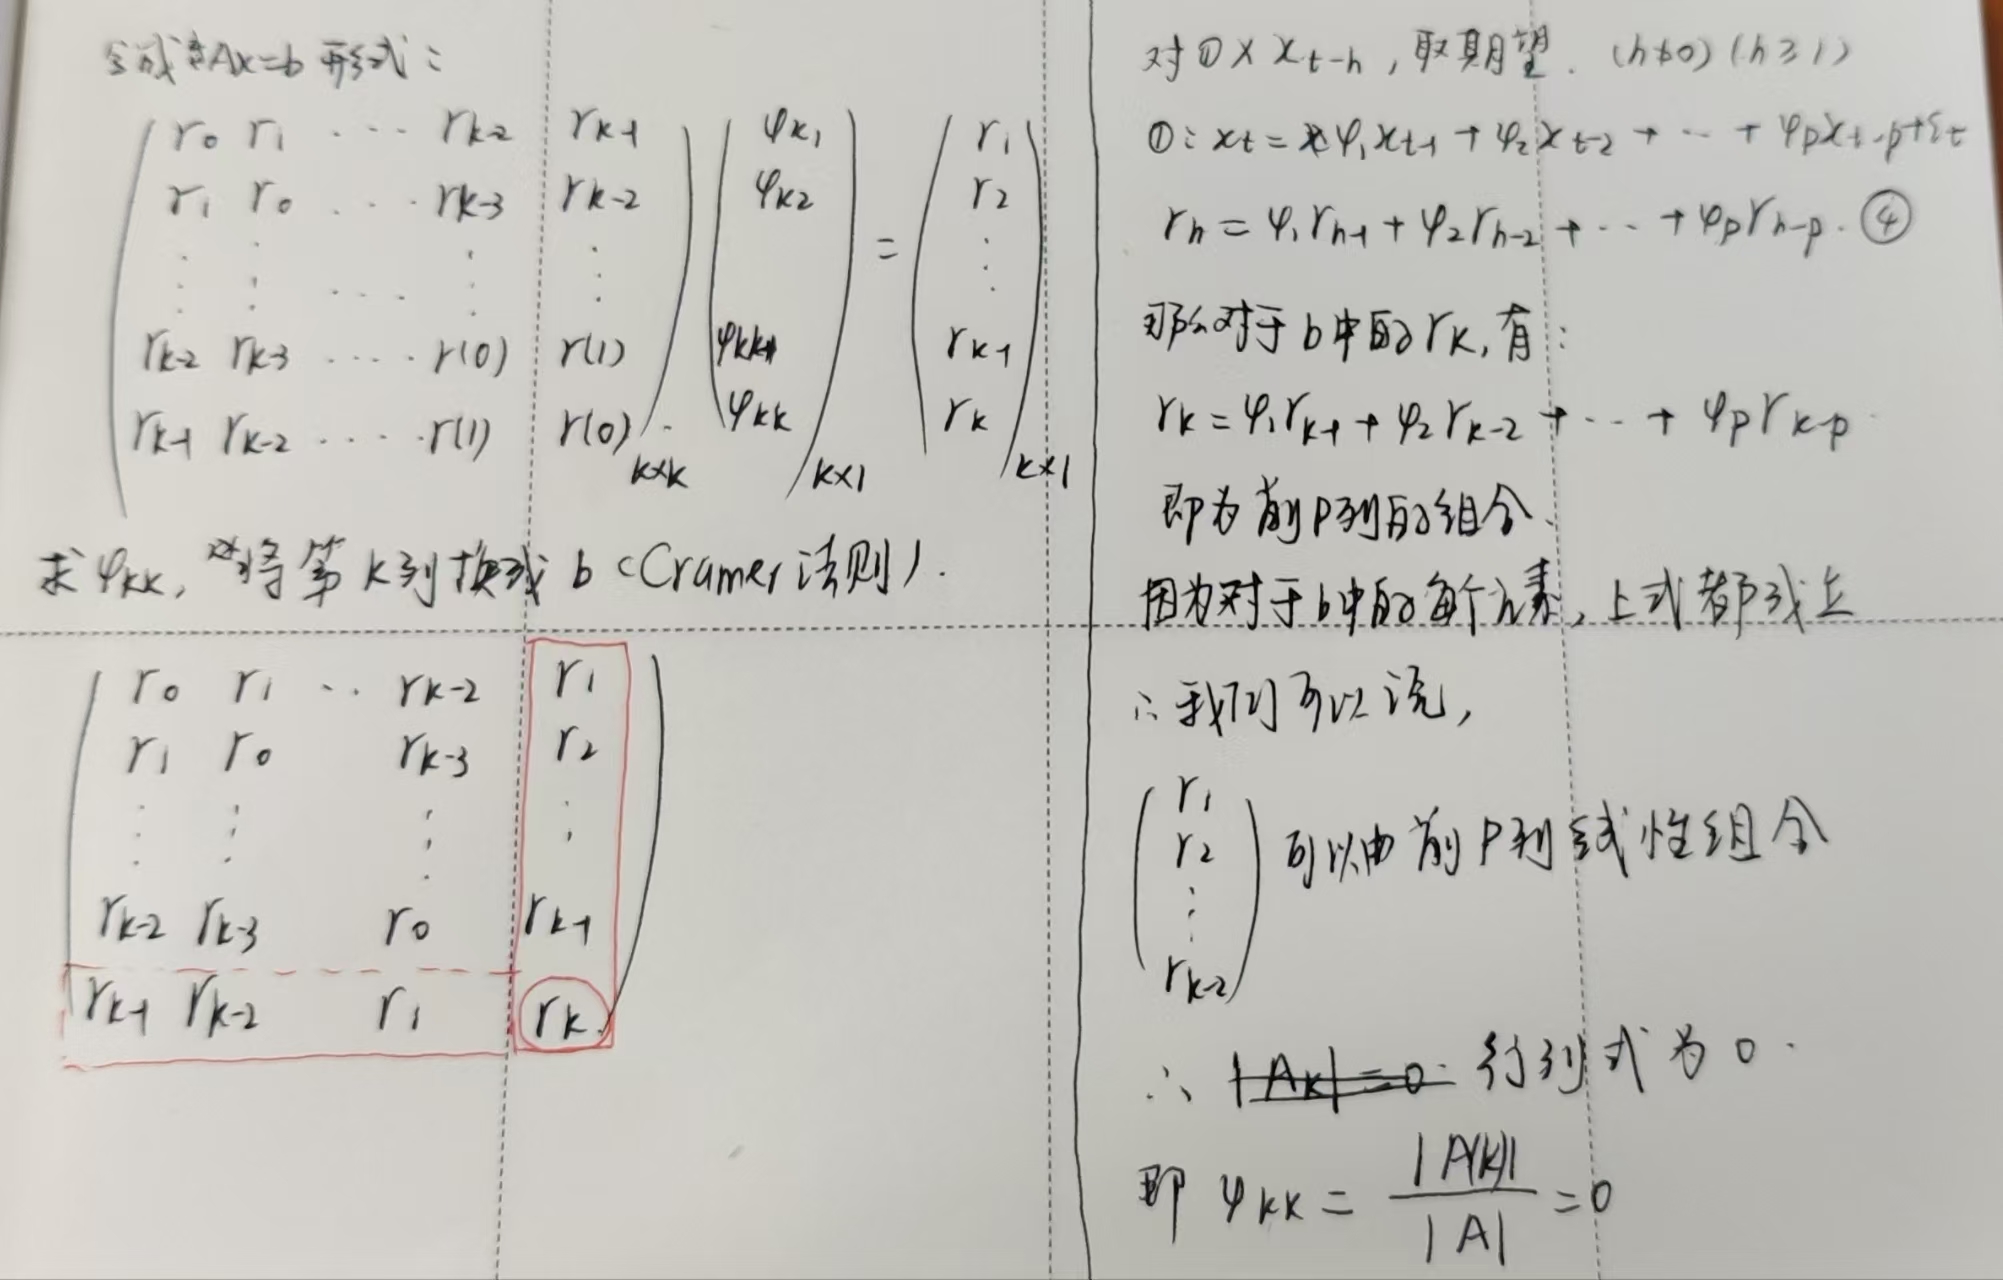 写成Ax=b 形式：
r0 r1 ... rk-2 rk-1 φk1 r1
r1 r0 ... rk-3 rk-2 φk2 = r2
rk-2 rk-3 .... r(0) r(1) φkk-1 rk-1
rk-1 rk-2 .... r(1) r(0) k×k φkk k×1 rk k×1
求φkk, 将第k列换成 b (Cramer法则).
r0 r1 .. rk-2 r1
r1 r0 rk-3 r2
rk-2 rk-3 r0 rk-1
rk-1 rk-2 r1 rk
对①× xt-h, 取期望. (h≠0) (h≥1)
①: xt = φ1xt-1 + φ2xt-2 + ... + φpxt-p+εt
rh = φ1rh-1 + φ2rh-2 + ... + φprh-p. ④
那么对于b中的rk, 有:
rk = φ1rk-1 + φ2rk-2 + ... + φprk-p
即为前p列的组合.
因为对于b中的每个元素, 上式都成立
∴我们可以说,
r1
r2 可以由前p列线性组合
⋮
rk-2
∴ |Ak|=0 行列式为0.
即 φkk = |A(k)| / |A| = 0